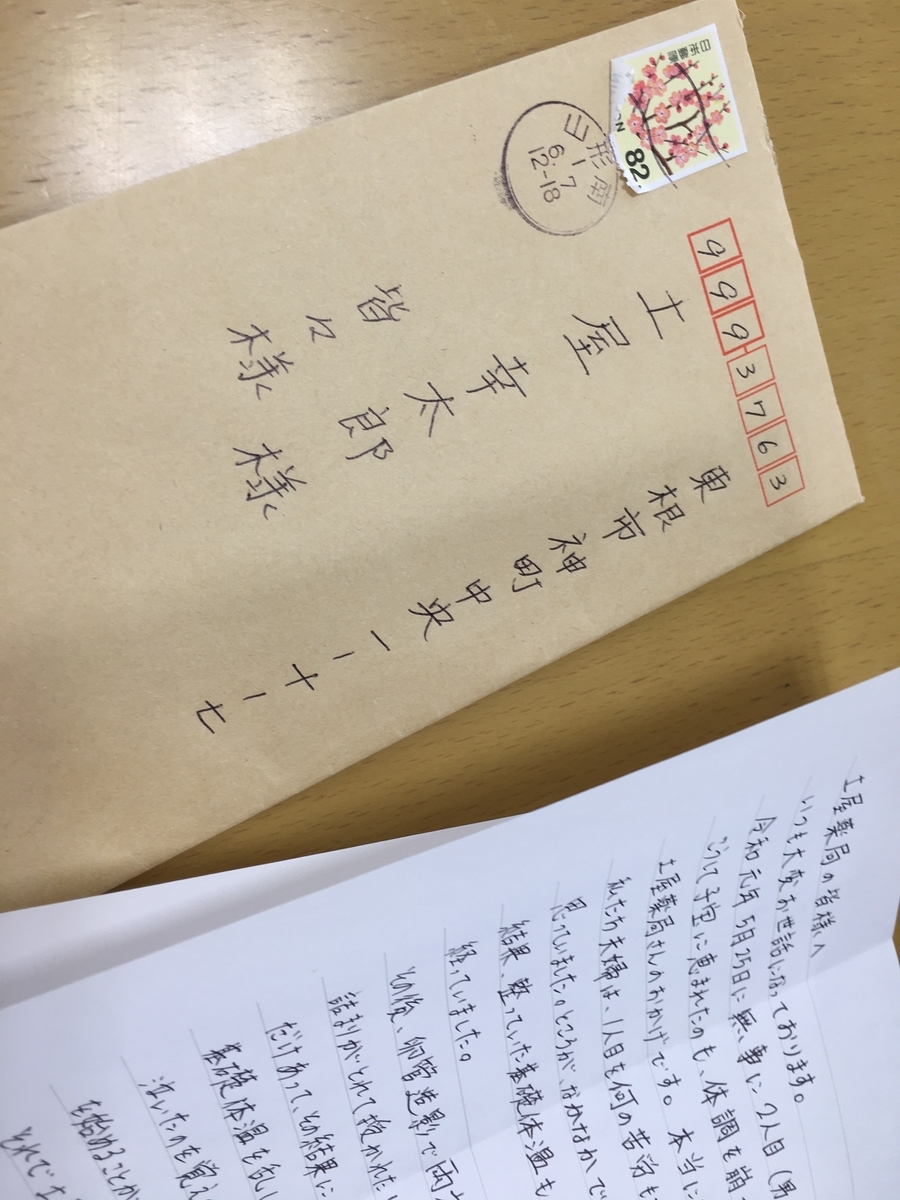 日本郵便
82
山形南
1 7
6
12-18
9993763
東根市神町中央一ー十ー七
土屋幸太郎様
皆々様
土屋薬局の皆様へ
いつも大変お世話になっております。
令和元年5月25日に無事に2人目(男
こうして子宝に恵まれたのも、体調を崩
土屋薬局さんのおかげです。本当に
私たち夫婦は、1人目を何の苦労も
思っていました。ところが、なかなかで
結果、整っていた基礎体温も
経っていました。
その後、卵管造影で両
詰まりがとれて抜かれた
だけあって、その結果に
基礎体温を乱し
泣いたのを覚え
を始めることが
それで